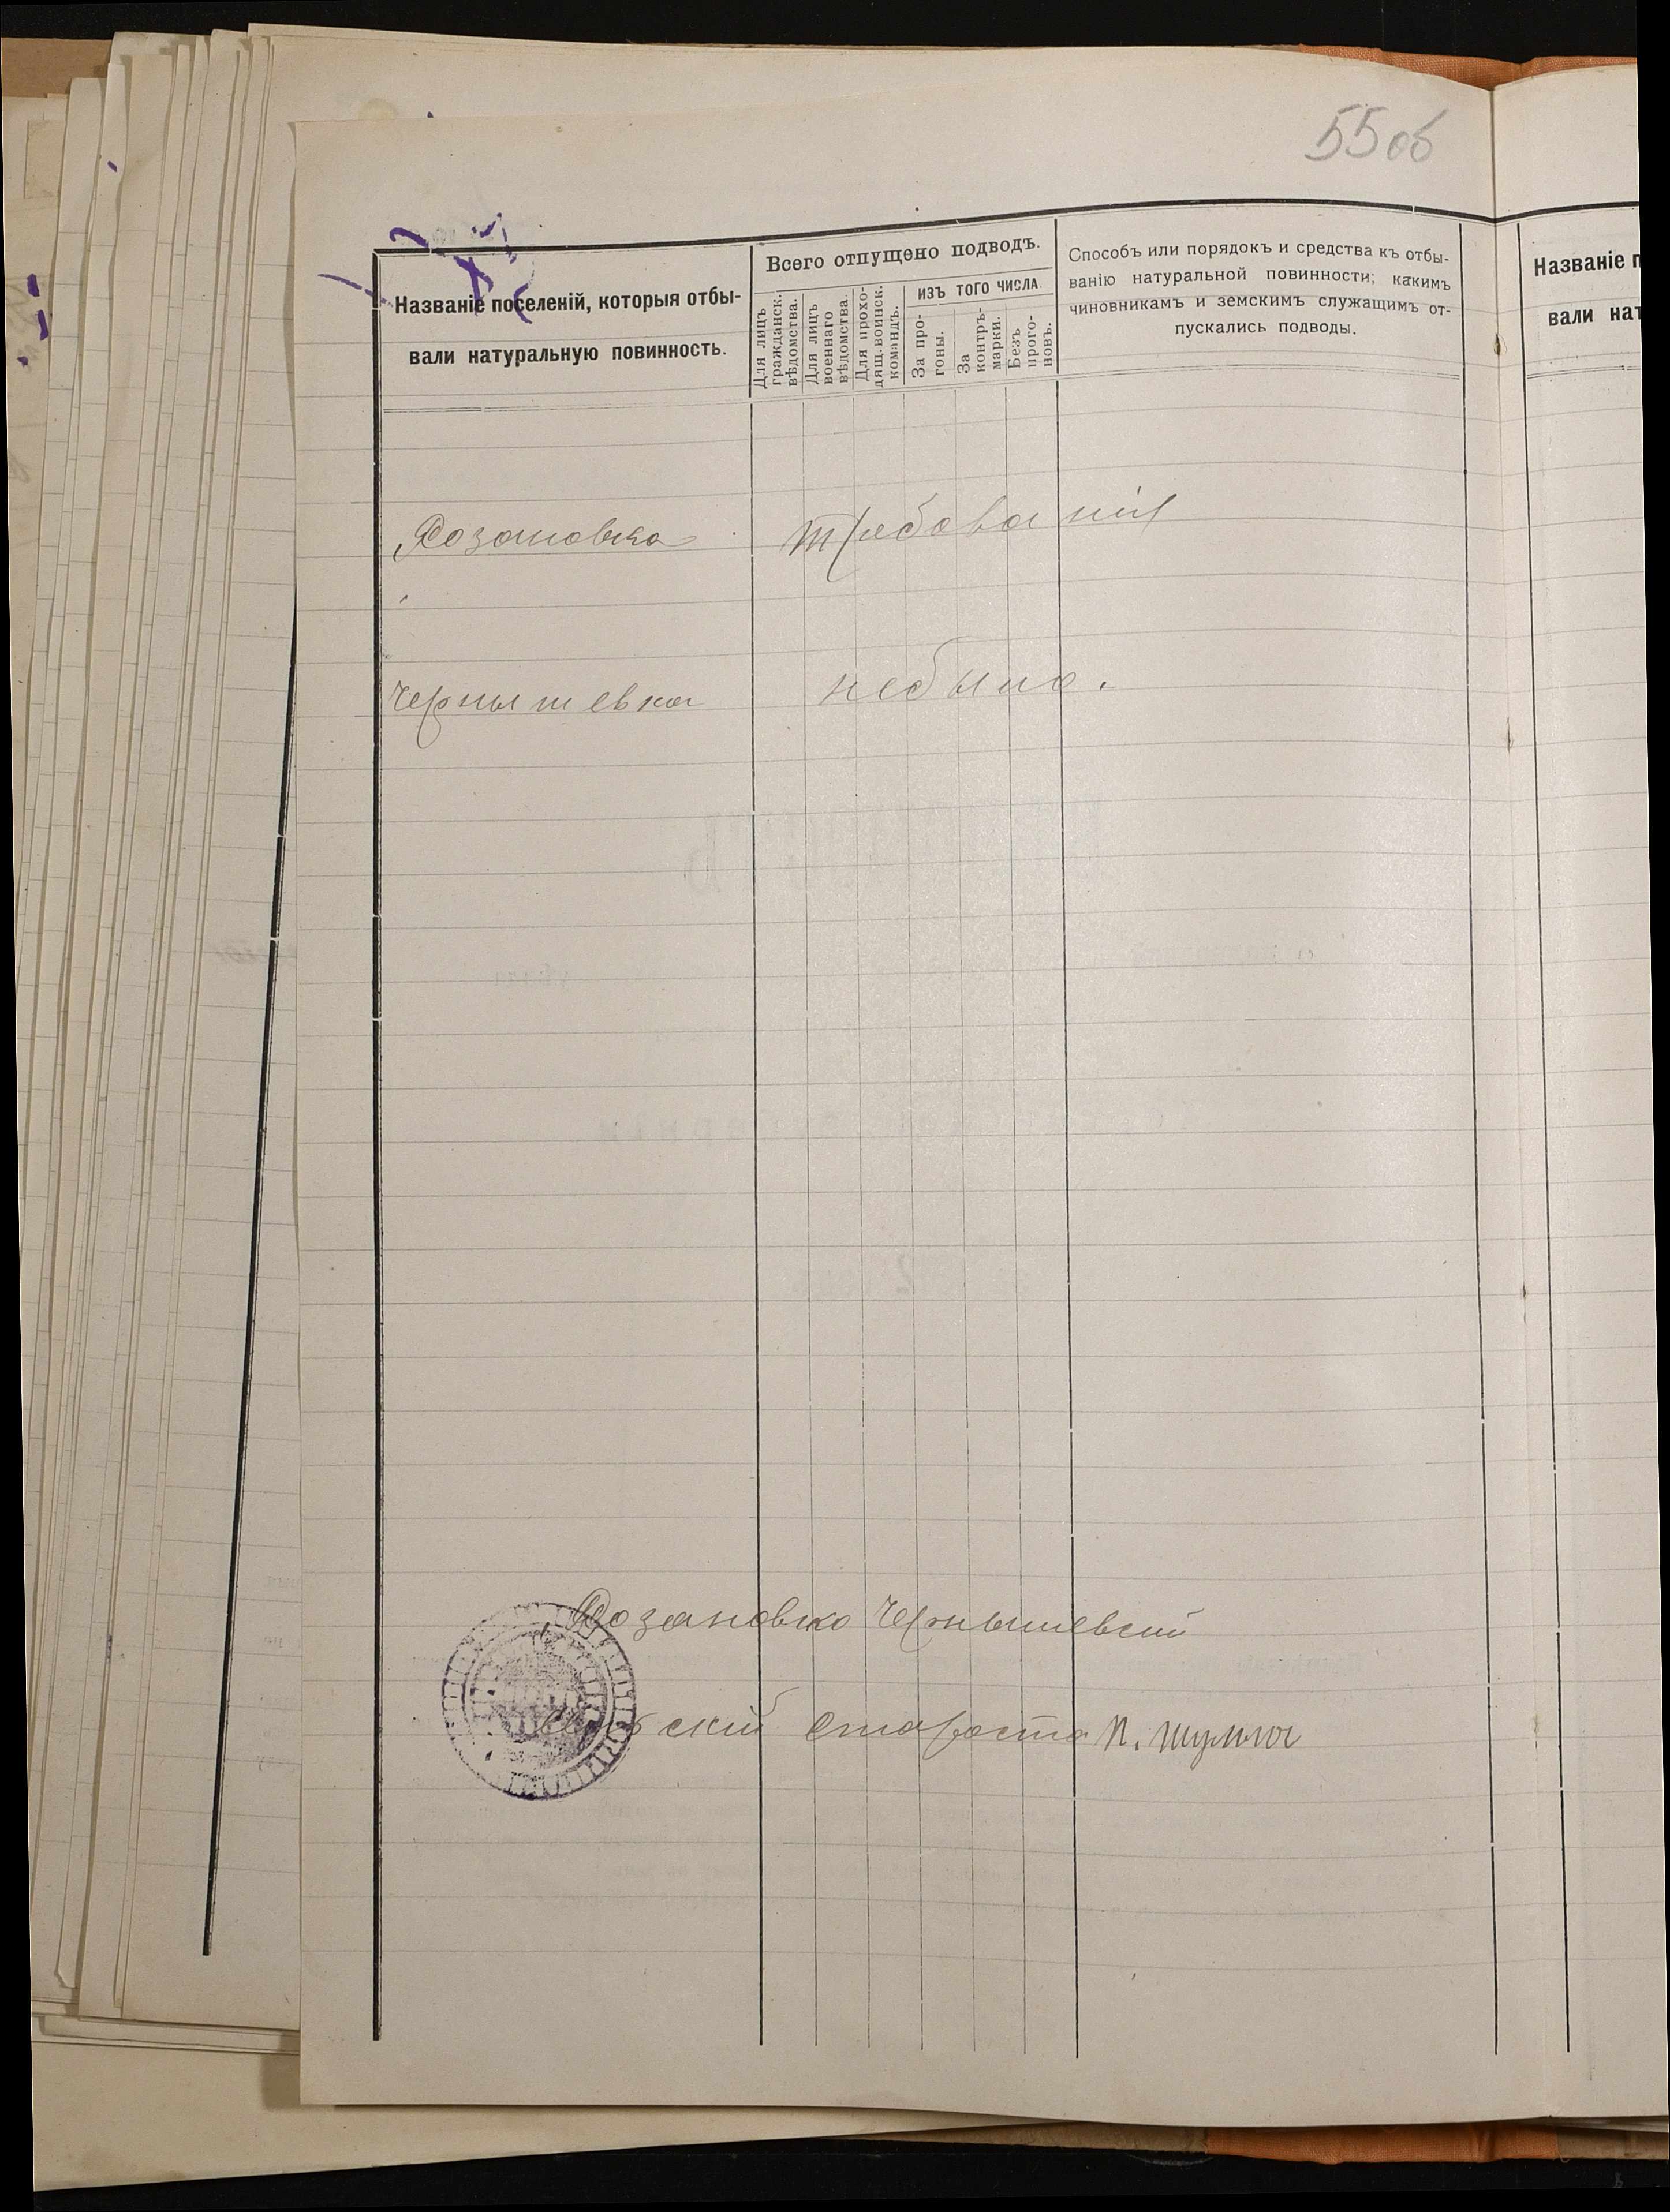 55 об
Названіе поселеній, которыя отбы-
вали натуральную повинность.
Всего отпущено подводъ.
Для лицъ
гражданск.
вѣдомства.
Для лицъ
военнаго
вѣдомства.
Для прохо-
дящ. воинск.
командъ.
ИЗЪ ТОГО ЧИСЛА
За про-
гоны.
За
контръ-
марки.
Безъ
прого-
новъ.
Способъ или порядокъ и средства къ отбы-
ванію натуральной повинности; какимъ
чиновникамъ и земскимъ служащимъ от-
пускались подводы.
Названіе п
вали нат
Розановка требованія
Чернышевка небыло.
Розановко Чернышевскій
Сельскій Староста П. Шумла